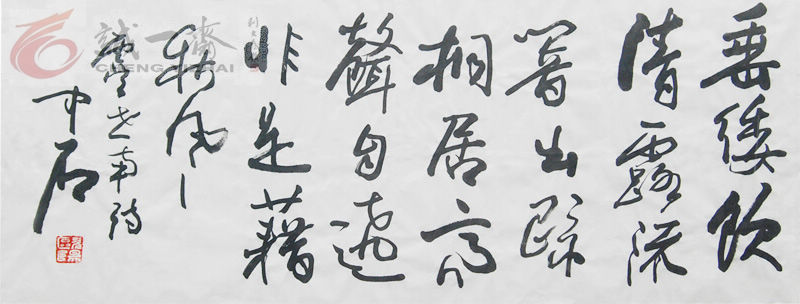 垂緌飲
清露流
響出疏
桐居高
聲自遠
非是藉
秋風
虞世南詩
中石
誠一齋
CHENG YI ZHAI